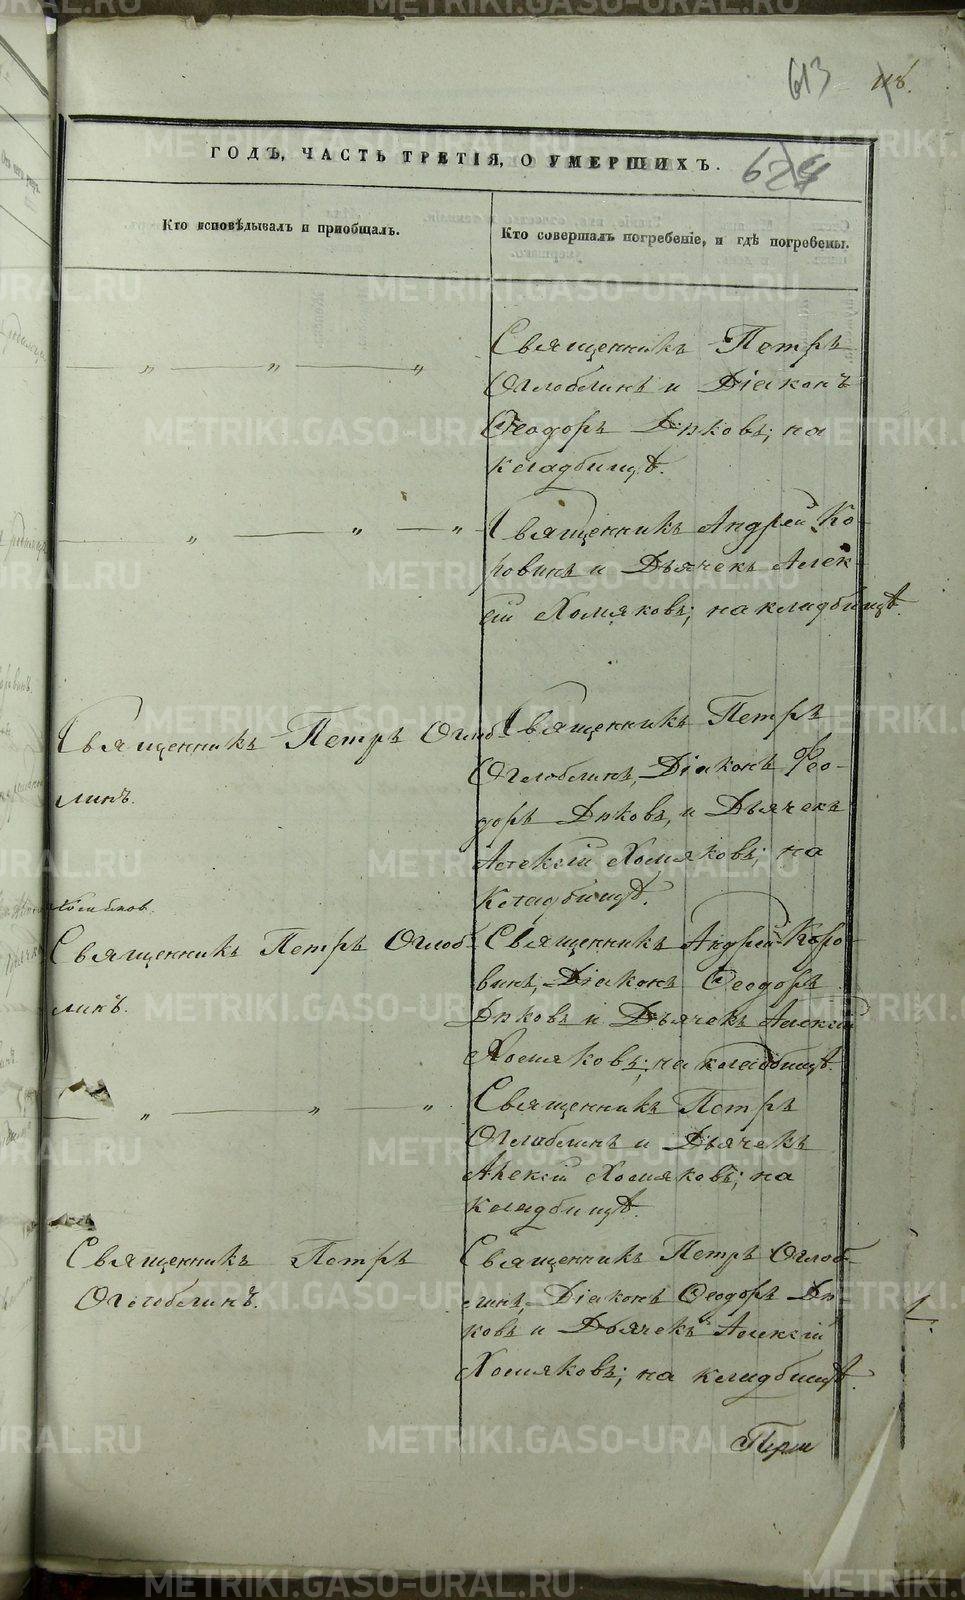 613
118.
ГОДЪ, ЧАСТЬ ТРЕТІЯ, О УМЕРШИХЪ.
624
Кто исповѣдывалъ и пріобщалъ.
Кто совершалъ погребеніе, и гдѣ погребены.
Священникъ Петръ
Оглоблинъ и Діаконъ
Ѳеодоръ Дяковъ; на
кладбищѣ.
Священникъ Андрей Ко-
ровинъ и Дьячекъ Алек-
сій Хомяковъ; на кладбищѣ.
Священникъ Петръ Оглоб-
линъ.
Священникъ Петръ
Оглоблинъ, Діаконъ Ѳео-
доръ Дяковъ, и Дьячекъ
Алексій Хомяковъ; на
кладбищѣ.
Священникъ Петръ Оглоб-
линъ.
Священникъ Андрей Коро-
винъ, Діаконъ Ѳеодоръ
Дяковъ и Дьячекъ Алексій
Хомяковъ; на кладбищѣ.
Священникъ Петръ
Оглоблинъ и Дьячекъ
Алексій Хомяковъ; на
кладбищѣ.
Священникъ Петръ
Оглоблинъ.
Священникъ Петръ Оглоб-
линъ, Діаконъ Ѳеодоръ Дя-
ковъ и Дьячекъ Алексій
Хомяковъ; на кладбищѣ.
METRIKI.GASO-URAL.RU